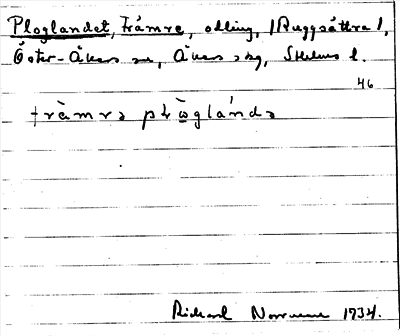 Ploglandet, Främre, odling, (Ruggsättra),
Öster-Åkers sn, Åkers skg, Sthlms l.
46
fràmrə plὼglándə
Rickard Norrman 1934.